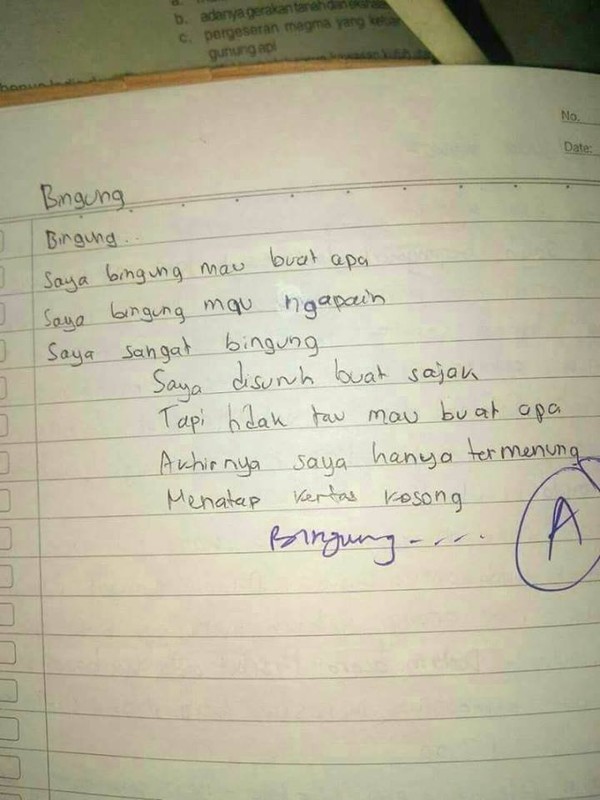 b. adanya gerakan tanah dan
c. pergeseran magma yang
gunung api
No.
Date:
Bingung
Bingung..
Saya bingung mau buat apa
Saya bingung mau ngapain
Saya sangat bingung
Saya disuruh buat sajak
Tapi tidak tau mau buat apa
Akhirnya saya hanya termenung
Menatap kertas kosong
Bingung -....
A